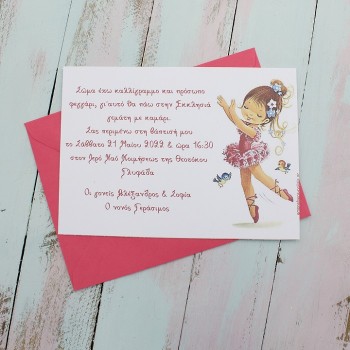 Σώμα έχω καλλίγραμμο και πρόσωπο
φεγγάρι, γι'αυτό θα πάω στην Εκκλησιά
γεμάτη με καμάρι.
Σας περιμένω στη βάπτισή μου
το Σάββατο 21 Μαΐου 2022 & ώρα 16:30
στον Ιερό Ναό Κοιμήσεως της Θεοτόκου
Γλυφάδα
Οι γονείς Αλέξανδρος & Σοφία
Ο νονός Γεράσιμος